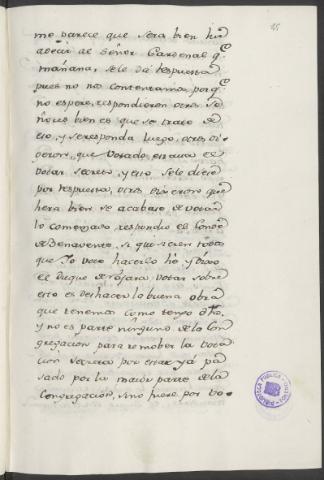 15
me parece que sera bien hir
a decir al Señor Cardenal q.e
mañana, se le dá respuesta
pues no nos contentamos, porq.e
no espere, respondieron otros Se-
ñores bien es que se trate de
esto, y se responda luego, otros di-
geron, que votado estava el
votar secreto, y eso se le diese
por respuesta, otros dixeron que
hera bien se acabase de votar
lo comenzado respondio el Conde
de Benavente, si quisieren todos
que
el Duque de votar sobre
esto es deshacer lo buena obra
que tenemos como tengo dho,
y no es parte ninguno de la Con
gregacion para remober la vota
cion secreta por estar yá pa
sado por la maior parte de la
Congregacion, sino fuere por vo-
BIBLIOTECA PUBLICA
TOLEDO